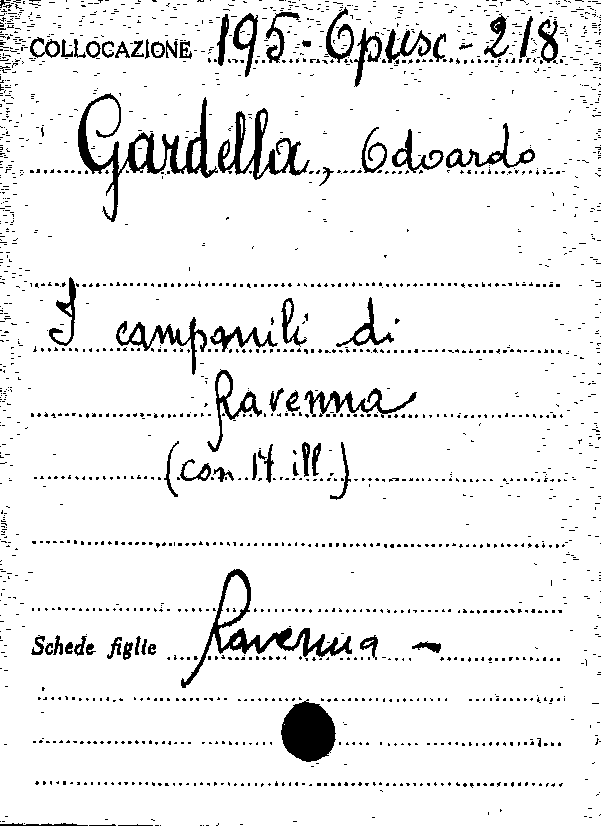 COLLOCAZIONE 195-Opusc-218
Gardella, Odoardo
I campanili di
Ravenna
(con 17 ill.)
Schede figlie Ravenna -